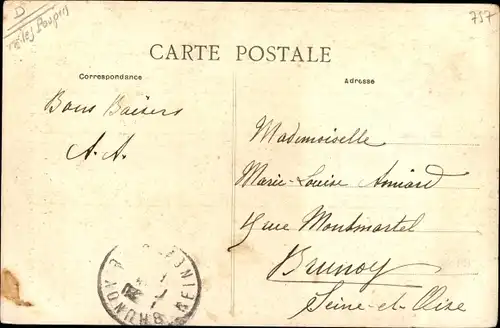 D
757
CARTE POSTALE
Correspondance
Adresse
Bons Baisers
A. A.
Mademoiselle
Marie-Louise
rue Montmartel
Brunoy
Seine-et-Oise